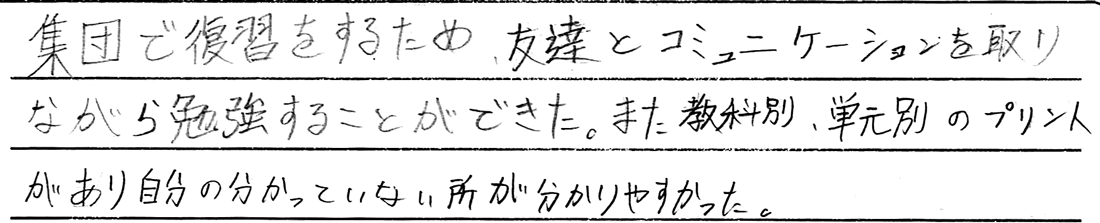 集団で復習をするため、友達とコミュニケーションを取り
ながら勉強することができた。また教科別、単元別のプリント
があり自分の分かっていない所が分かりやすかった。